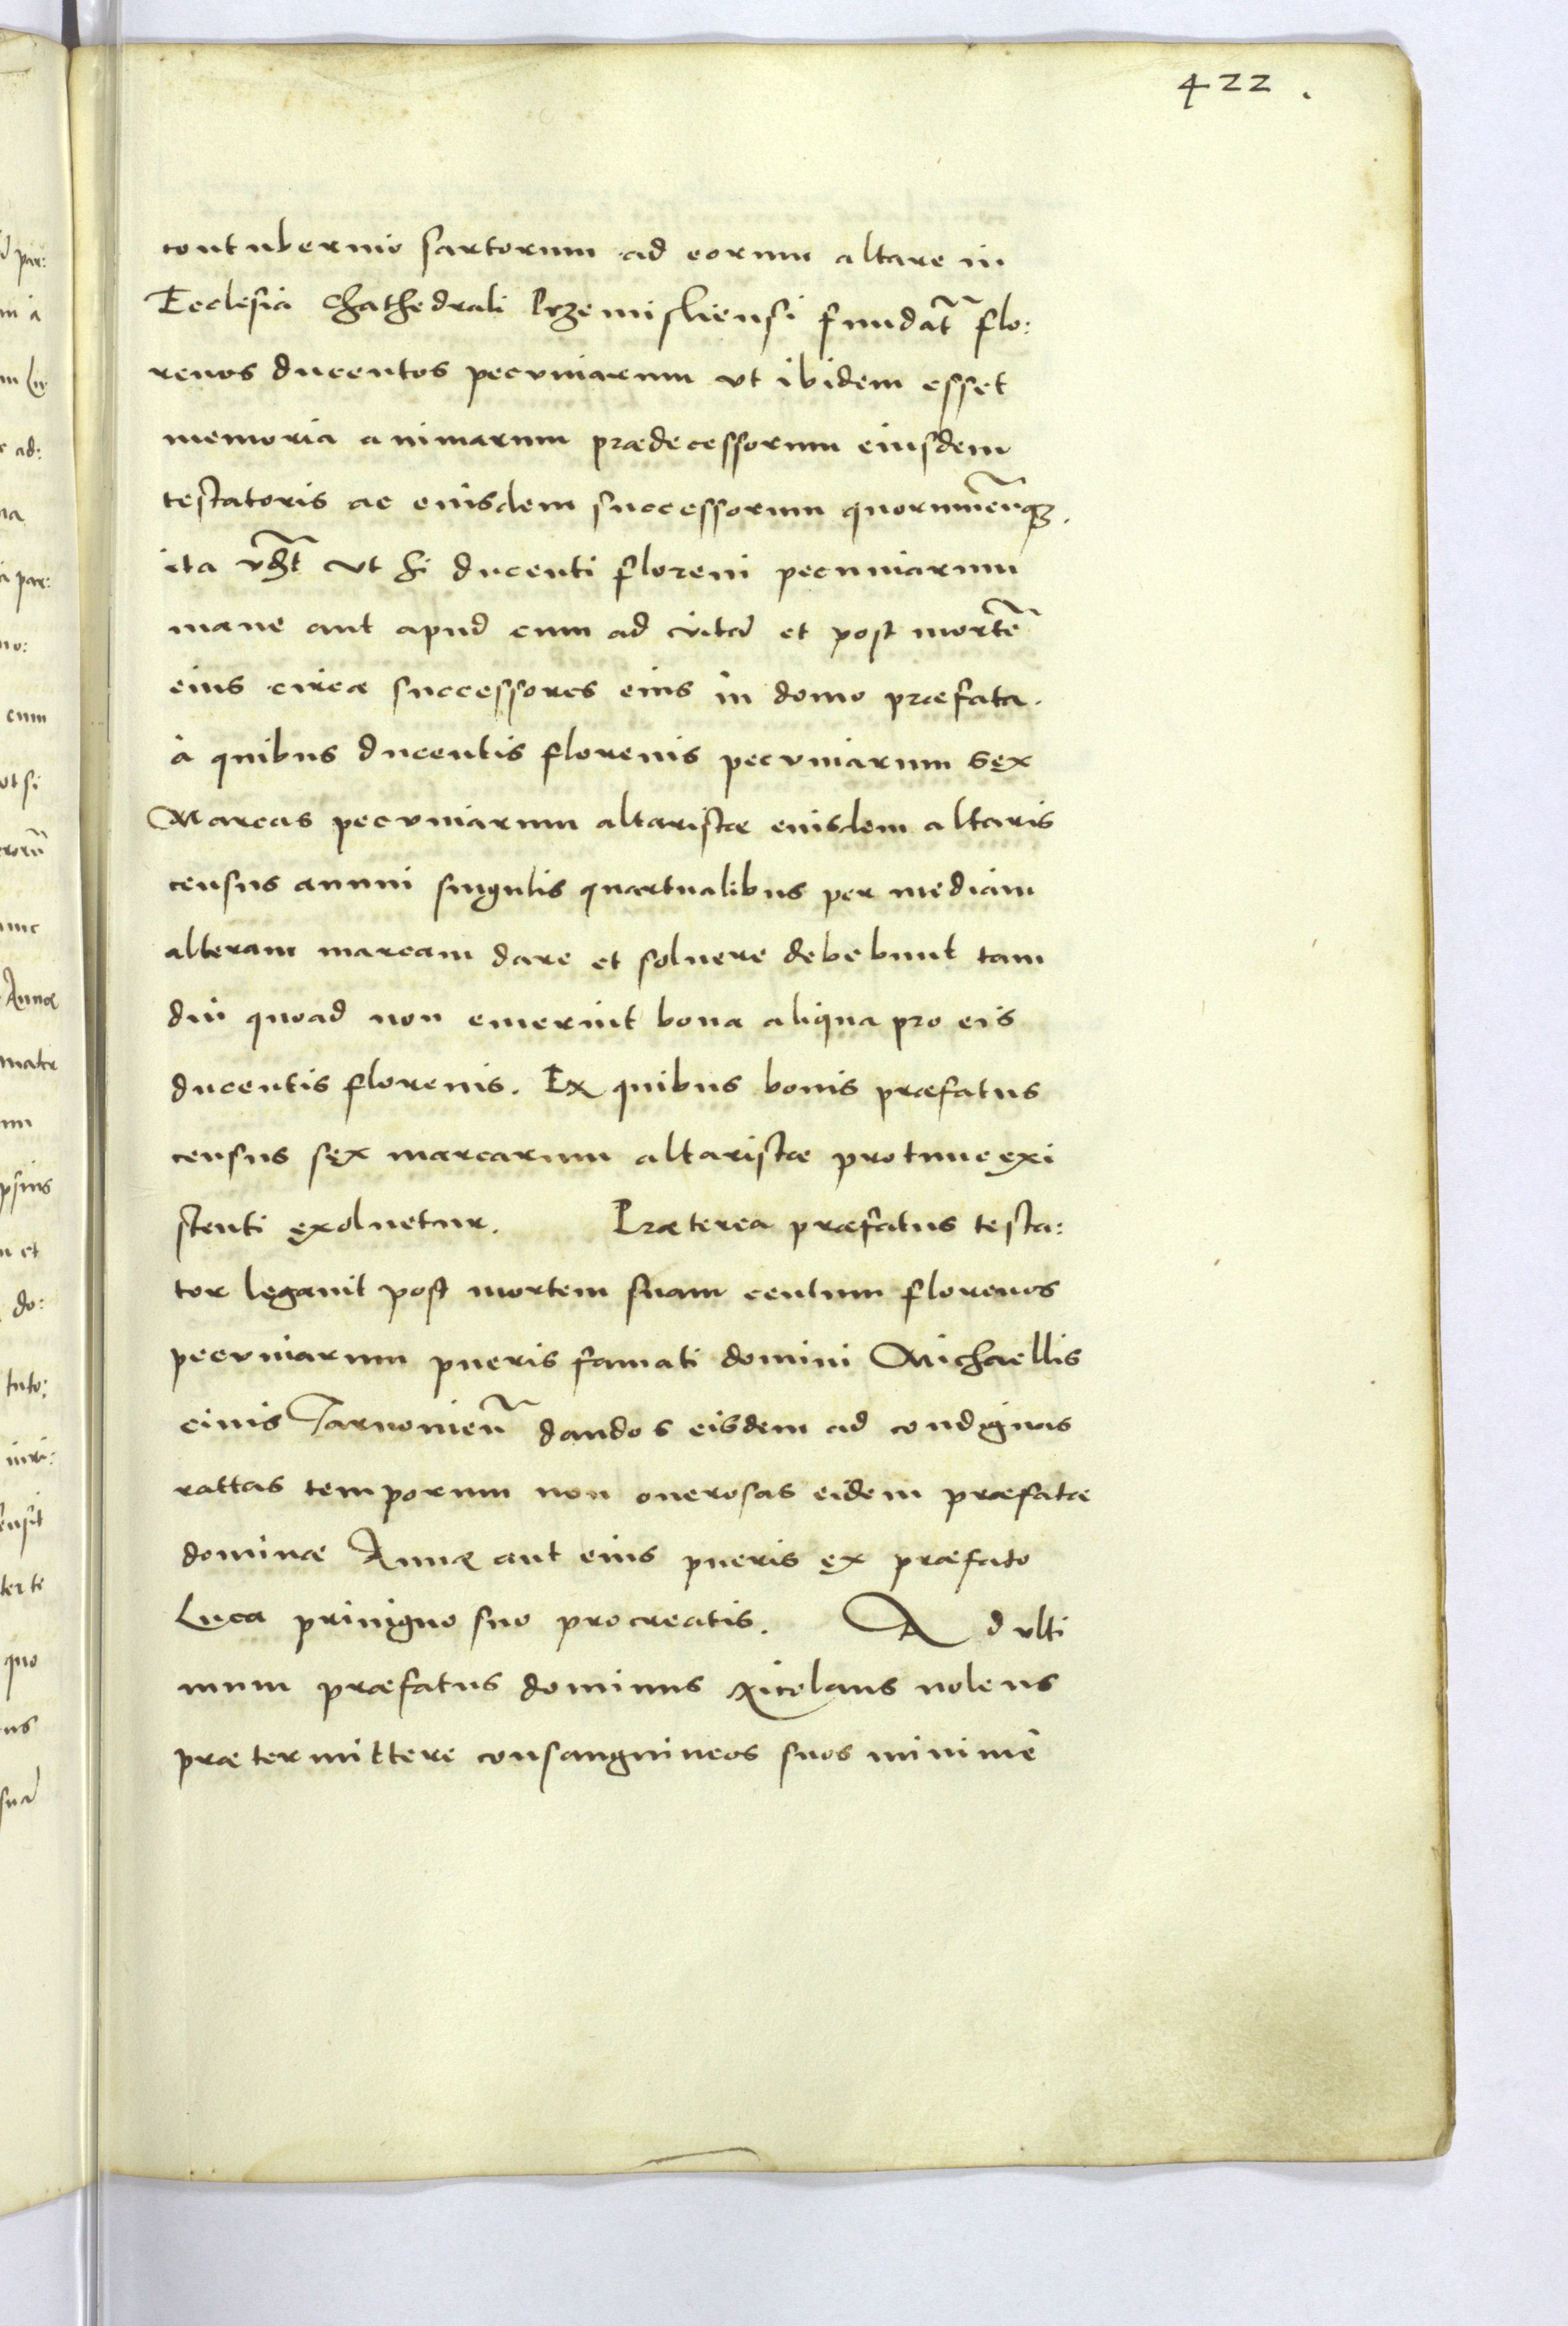 422.
contubernio sartorum ad eorum altare in
Ecclesia Chathedrali Przemisliensi fundat̃ flo:
renos ducentos pecuniarum vt ibidem esset
memoria animarum prædecessorum eiusdem
testatoris ac eiusdem successorum quorumcũqꝫ.
ita vdt̃ vt hi ducenti floreni pecuniarum
maneant apud eum ad vitã et post mortẽ
eius circa successores eius in domo præfata.
à quibus ducentis florenis pecuniarum sex
Marcas pecuniarum altaristæ eiusdem altaris
census annui singulis quartualibus per mediam
alteram marcam dare et soluere debebunt tam
diu quoad non emerint bona aliqua pro eis
ducentis florenis. Ex quibus bonis præfatus
census sex marcarum altaristæ protunc exi
stenti exoluetur. Præterea præfatus testa:
tor legauit post mortem suam centum florenos
pecuniarum pueris famati domini Michaellis
ciuis Tarnouieñ dandos eisdem ad condignas
rattas temporum non onerosas eidem præfatæ
dominæ Annæ aut eius pueris ex præfato
Luca priuigno suo procreatis. Ad vlti
mum præfatus dominus Nicolaus nolens
prætermittere consanguineos suos minimè